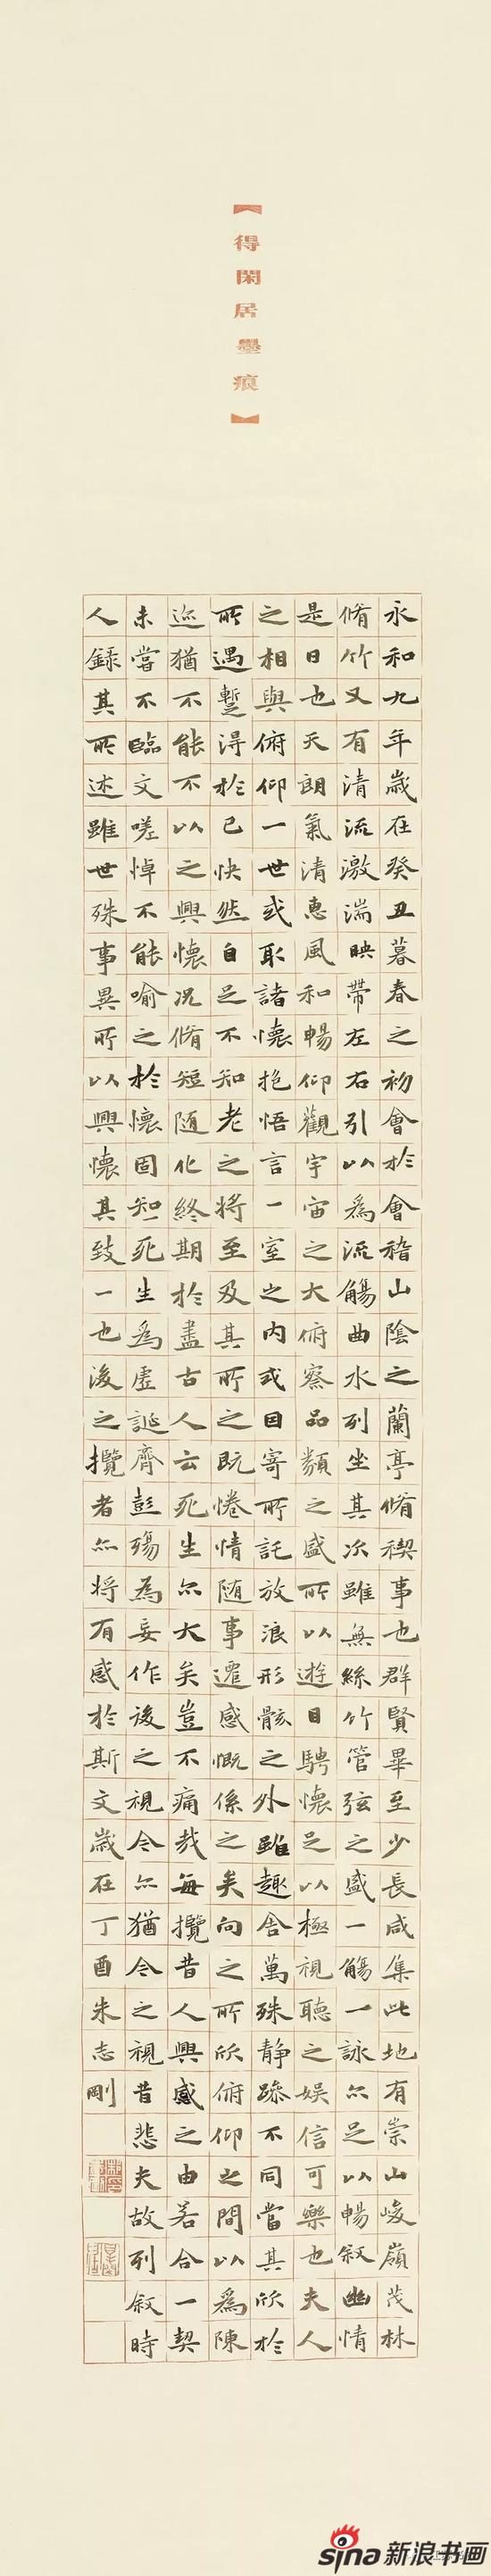 【得閑居墨痕】
永和九年歲在癸丑暮春之初會於會稽山陰之蘭亭脩禊事也群賢畢至少長咸集此地有崇山峻嶺茂林
脩竹又有清流激湍映帶左右引以為流觴曲水列坐其次雖無絲竹管弦之盛一觴一詠亦足以暢叙幽情
是日也天朗氣清惠風和暢仰觀宇宙之大俯察品類之盛所以遊目騁懷足以極視聽之娱信可樂也夫人
之相與俯仰一世或取諸懷抱悟言一室之内或因寄所託放浪形骸之外雖趣舍萬殊静躁不同當其欣於
所遇蹔得於己快然自足不知老之將至及其所之既惓情随事遷感慨係之矣向之所欣俯仰之間以為陳
迹猶不能不以之興懷况脩短随化終期於盡古人云死生亦大矣豈不痛哉每攬昔人興感之由若合一契
未嘗不臨文嗟悼不能喻之於懷固知一死生為虚誕齊彭殤為妄作後之視今亦猶今之視昔悲夫故列叙時
人録其所述雖世殊事異所以興懷其致一也後之攬者亦將有感於斯文歲在丁酉朱志剛
sina新浪书画